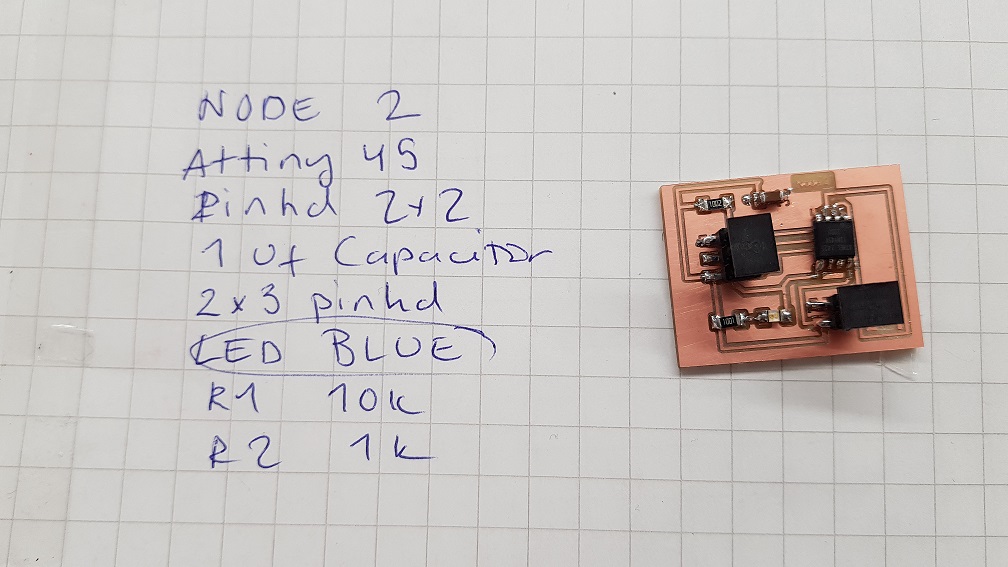 NODE 2
Attiny 45
Pinhd 2x2
1 uf Capacitor
2x3 pinhd
LED BLUE
R1 10K
R2 1K
1002
1001